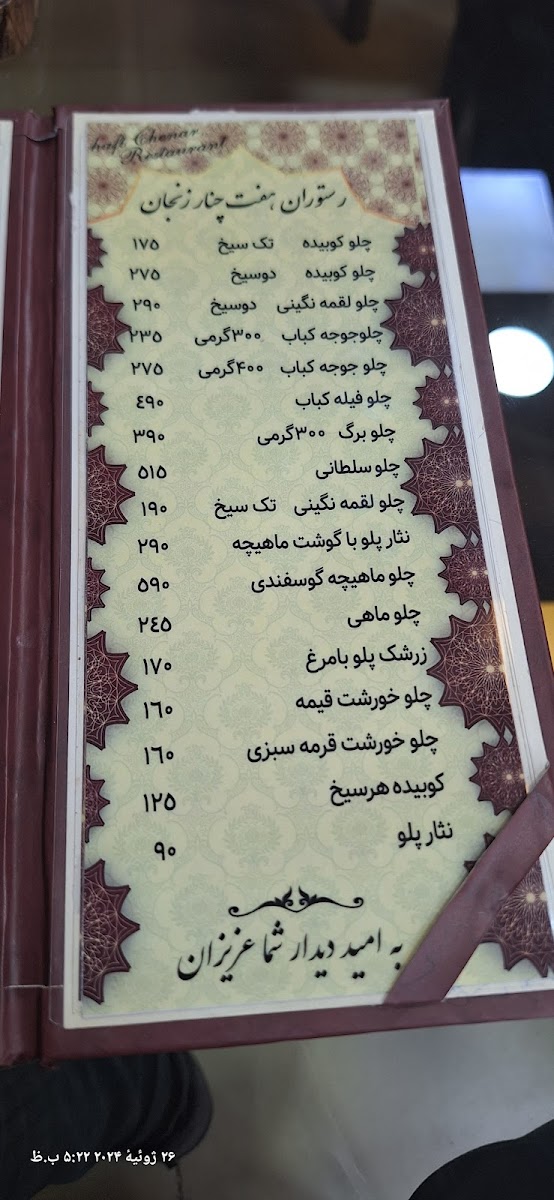 haft Chenar
Restaurant
رستوران هفت چنار زنجان
چلو کوبیده تک سیخ ۱۷۵
چلو کوبیده دوسیخ ۲۷۵
چلو لقمه نگینی دوسیخ ۲۹۰
چلوجوجه کباب ۳۰۰گرمی ۲۳۵
چلو جوجه کباب ۴۰۰گرمی ۲۷۵
چلو فیله کباب ٤۹۰
چلو برگ ۳۰۰گرمی ۳۹۰
چلو سلطانی ۵۱۵
چلو لقمه نگینی تک سیخ ۱۹۰
نثار پلو با گوشت ماهیچه ۲۹۰
چلو ماهیچه گوسفندی ۵۹۰
چلو ماهی ۲٤۵
زرشک پلو بامرغ ۱۷۰
چلو خورشت قیمه ۱٦۰
چلو خورشت قرمه سبزی ۱٦۰
کوبیده هرسیخ ۱۲۵
نثار پلو ۹۰
به امید دیدار شما عزیزان
۲۶ ژوئیهٔ ۲۰۲۴ ۵:۲۲ ب.ظ